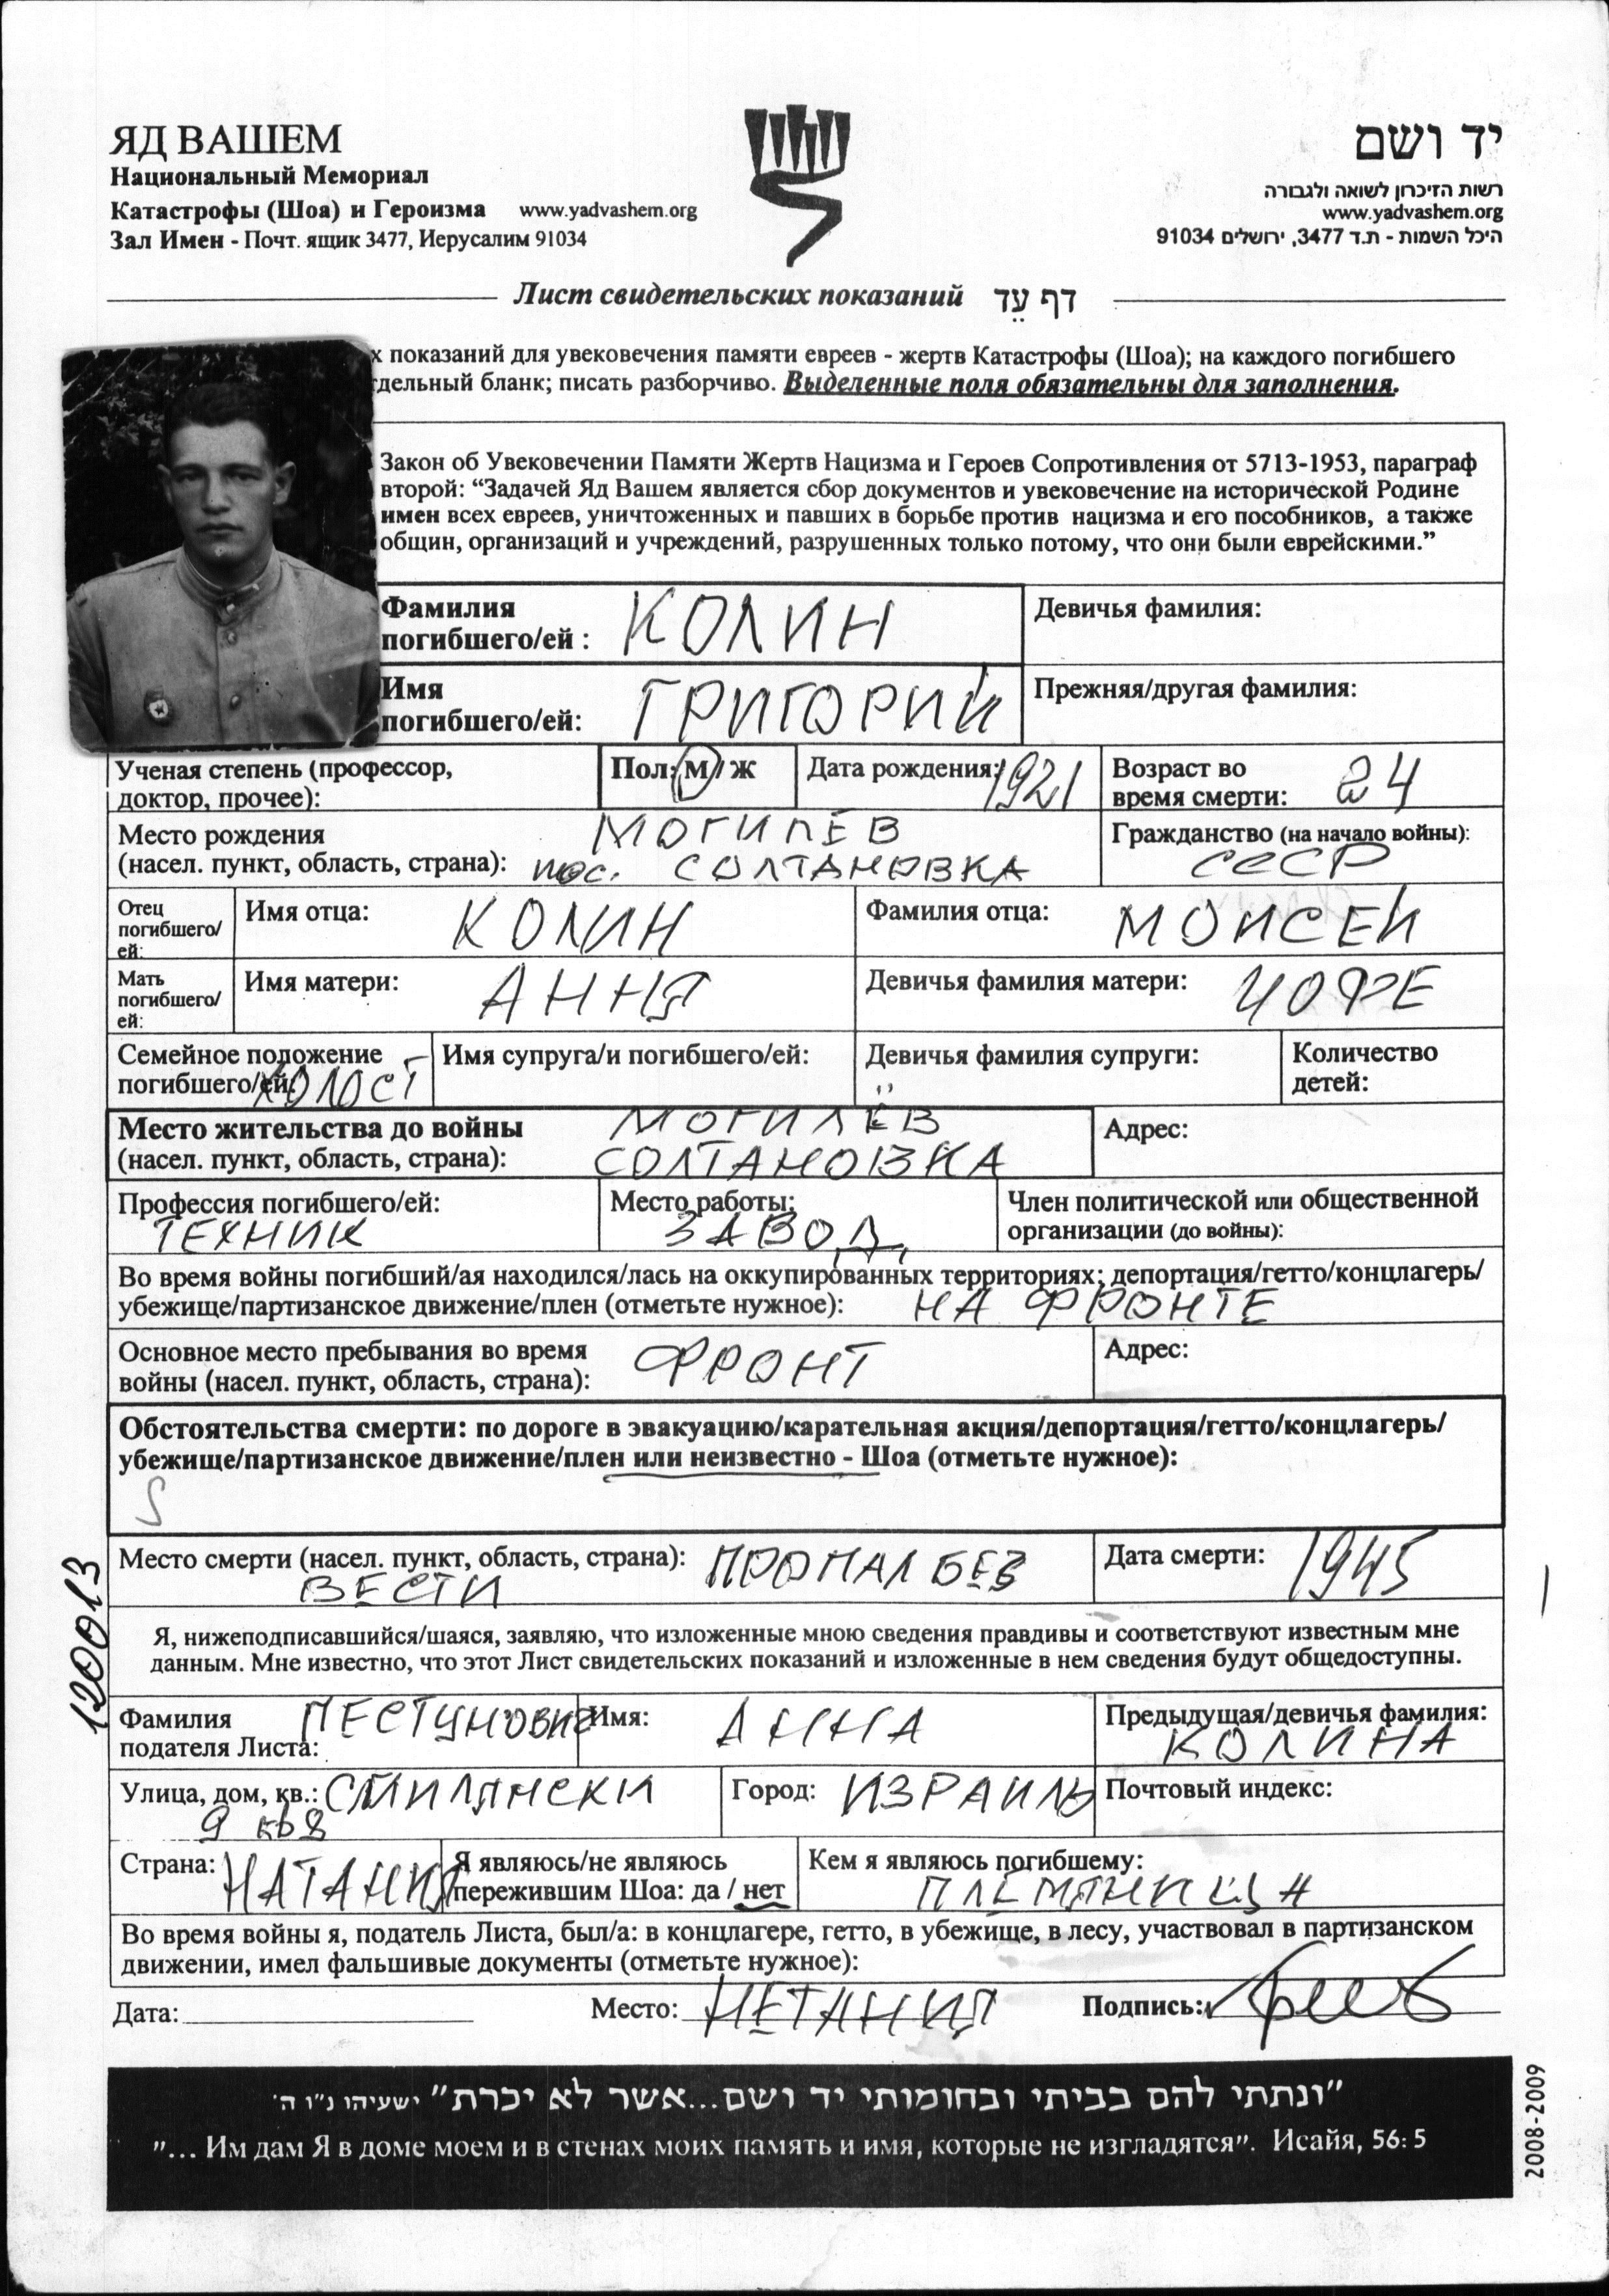 ЯД ВАШЕМ
Национальный Мемориал
Катастрофы (Шоа) и Героизма www.yadvashem.org
Зал Имен - Почт. ящик 3477, Иерусалим 91034
יד ושם
רשות הזיכרון לשואה ולגבורה
www.yadvashem.org
היכל השמות - ת.ד 3477, ירושלים 91034
Лист свидетельских показаний דף עֵד
х показаний для увековечения памяти евреев - жертв Катастрофы (Шоа); на каждого погибшего
дельный бланк; писать разборчиво. Выделенные поля обязательны для заполнения.
Закон об Увековечении Памяти Жертв Нацизма и Героев Сопротивления от 5713-1953, параграф
второй: “Задачей Яд Вашем является сбор документов и увековечение на исторической Родине
имен всех евреев, уничтоженных и павших в борьбе против нацизма и его пособников, а также
общин, организаций и учреждений, разрушенных только потому, что они были еврейскими.”
Фамилия
погибшего/ей : КОЛИН
Девичья фамилия:
Имя
погибшего/ей: ГРИГОРИЙ
Прежняя/другая фамилия:
Ученая степень (профессор,
доктор, прочее):
Пол: М / Ж
Дата рождения: 1921
Возраст во
время смерти: 24
Место рождения МОГИЛЕВ
(насел. пункт, область, страна): пос. СОЛТАНОВКА
Гражданство (на начало войны):
СССР
Отец
погибшего/
ей:
Имя отца: КОЛИН
Фамилия отца: МОИСЕЙ
Мать
погибшего/
ей:
Имя матери: АННА
Девичья фамилия матери: ИОФФЕ
Семейное положение
погибшего/ей: ХОЛОСТ
Имя супруга/и погибшего/ей:
Девичья фамилия супруги:
Количество
детей:
Место жительства до войны МОГИЛЁВ
(насел. пункт, область, страна): СОЛТАНОВКА
Адрес:
Профессия погибшего/ей:
ТЕХНИК
Место работы:
ЗАВОД
Член политической или общественной
организации (до войны):
Во время войны погибший/ая находился/лась на оккупированных территориях: депортация/гетто/концлагерь/
убежище/партизанское движение/плен (отметьте нужное): НА ФРОНТЕ
Основное место пребывания во время
войны (насел. пункт, область, страна): ФРОНТ
Адрес:
Обстоятельства смерти: по дороге в эвакуацию/карательная акция/депортация/гетто/концлагерь/
убежище/партизанское движение/плен или неизвестно - Шоа (отметьте нужное):
S
Место смерти (насел. пункт, область, страна): ПРОПАЛ БЕЗ
ВЕСТИ
Дата смерти: 1945
120013
Я, нижеподписавшийся/шаяся, заявляю, что изложенные мною сведения правдивы и соответствуют известным мне
данным. Мне известно, что этот Лист свидетельских показаний и изложенные в нем сведения будут общедоступны.
Фамилия ПЕСТУНОВИЧ
подателя Листа:
Имя: АННА
Предыдущая/девичья фамилия:
КОЛИНА
Улица, дом, кв.: СМИЛЯНСКИ
9 кв 8
Город: ИЗРАИЛЬ
Почтовый индекс:
Страна: НАТАНИЯ
Я являюсь/не являюсь
пережившим Шоа: да / нет
Кем я являюсь погибшему:
ПЛЕМЯННИЦА
Во время войны я, податель Листа, был/а: в концлагере, гетто, в убежище, в лесу, участвовал в партизанском
движении, имел фальшивые документы (отметьте нужное):
Дата:
Место: НЕТАНИЯ
Подпись:
"ונתתי להם בביתי ובחומותי יד ושם...אשר לא יכרת" ישעיהו נ"ו ה'
"... Им дам Я в доме моем и в стенах моих память и имя, которые не изгладятся". Исайя, 56: 5
2008-2009